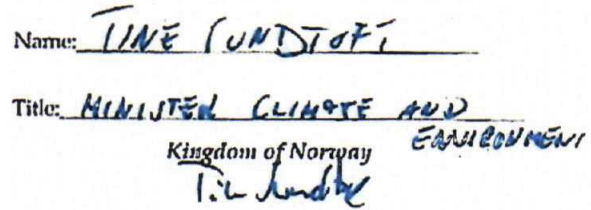 Name: TINE SUNDTOFT
Title: MINISTER CLIMATE AND
ENVIRONMENT
Kingdom of Norway